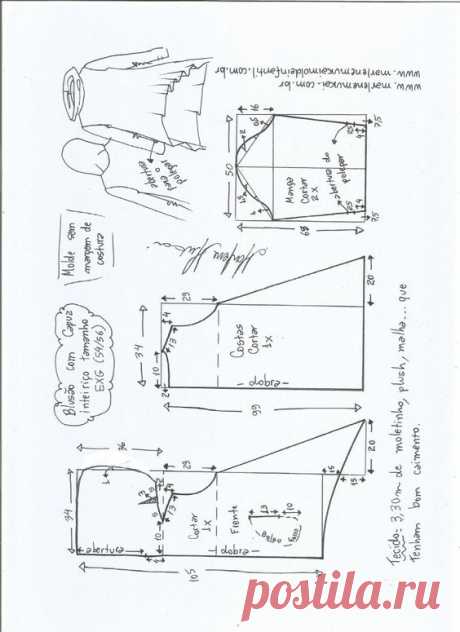 www.marlenemukai.com.br
www.marlenemukaimoldeinfantil.com.br
abertura
para o
polegar
Molde sem
margem de
costura
Blusão com Capuz
inteiriço tamanho
EXG (54/56)
16
50
Manga
Cortar
2x
abertura do
polegar
7,5
4
4
7,5
68
Marlene Mukai
29
4
34
10
13
2
Costas
Cortar
1x
dobra
20
66
36
29
34
13
10
abertura
Cortar
1x
Frente
dobra
13
10
15
15
20
105
Tecido: 3,30m de moletinho, plush, malha... que
Tenham bom caimento.
postila.ru